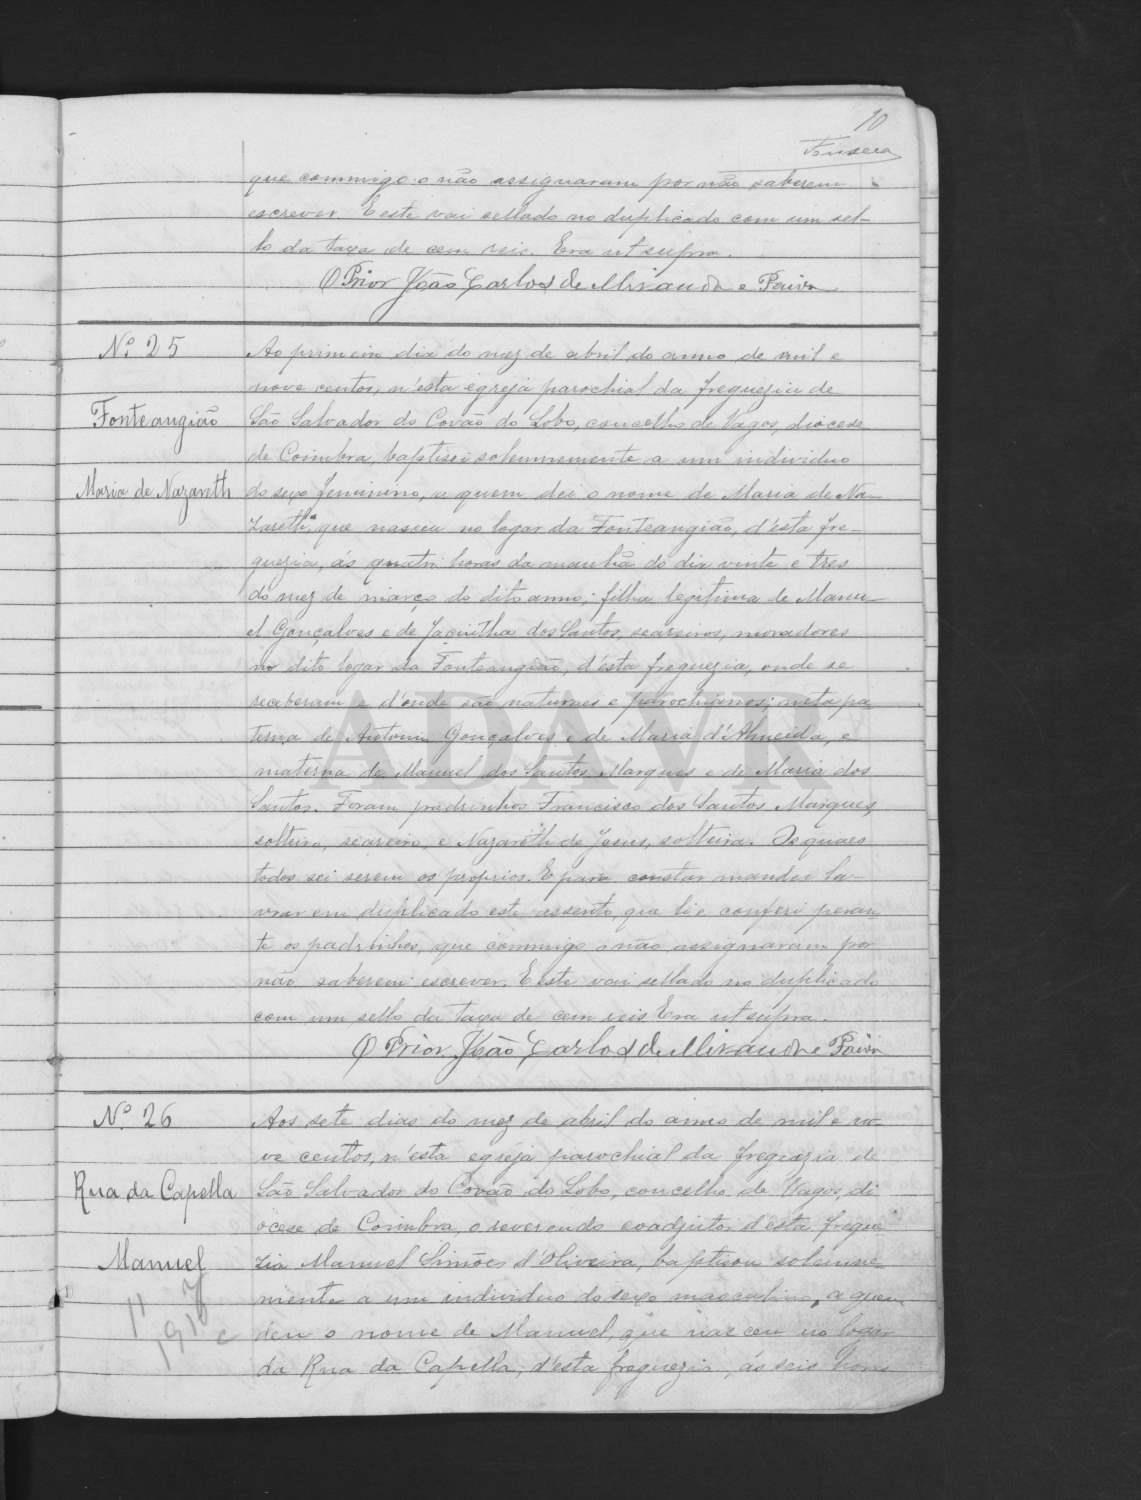 10
Fonseca
que commigo o não assignaram por não saberem
escrever. E este vai sellado no duplicado com um sel-
lo da taxa de cem reis. Era ut supra.
O Prior João Carlos de Miranda e Paiva
Nº 25
Fonteangião
Maria de Nazareth
Ao primeiro dia do mez de abril do anno de mil e
nove centos, n'esta egreja parochial da freguezia de
São Salvador do Covão do Lobo, concelho de Vagos, diocese
de Coimbra, baptisei solemnemente a um individuo
do sexo feminino, a quem dei o nome de Maria de Na-
zareth, que nasceu no logar da Fonteangião, d'esta fre-
guezia, ás quatro horas da manhã do dia vinte e tres
do mez de março do dito anno; filha legitima de Manu-
el Gonçalves e de Jacintha dos Santos, seareiros, moradores
no dito logar da Fonteangião, d'esta freguezia, onde se
receberam e d'onde são naturaes e parochianos; neta pa-
terna de Antonio Gonçalves e de Maria d'Almeida, e
materna de Manuel dos Santos Marques e de Maria dos
Santos. Foram padrinhos Francisco dos Santos Marques,
solteiro, seareiro, e Nazareth de Jesus, solteira. Os quaes
todos sei serem os proprios. E para constar mandei la-
vrar em duplicado este assento, que li e conferi peran-
te os padrinhos, que commigo o não assignaram por
não saberem escrever. E este vai sellado no duplicado
com um sello da taxa de cem reis Era ut supra.
O Prior João Carlos de Miranda e Paiva
Nº 26
Rua da Capella
Manuel
Aos sete dias do mez de abril do anno de mil e no-
ve centos, n'esta egreja parochial da freguezia de
São Salvador do Covão do Lobo, concelho de Vagos, di
ocese de Coimbra, o reverendo coadjutor d'esta fregue
zia Manuel Simões d'Oliveira, baptisou solemne
mente a um individuo do sexo masculino, a quem
deu o nome de Manuel, que nasceu no logar
da Rua da Capella, d'esta freguezia, ás seis horas
ADAVR